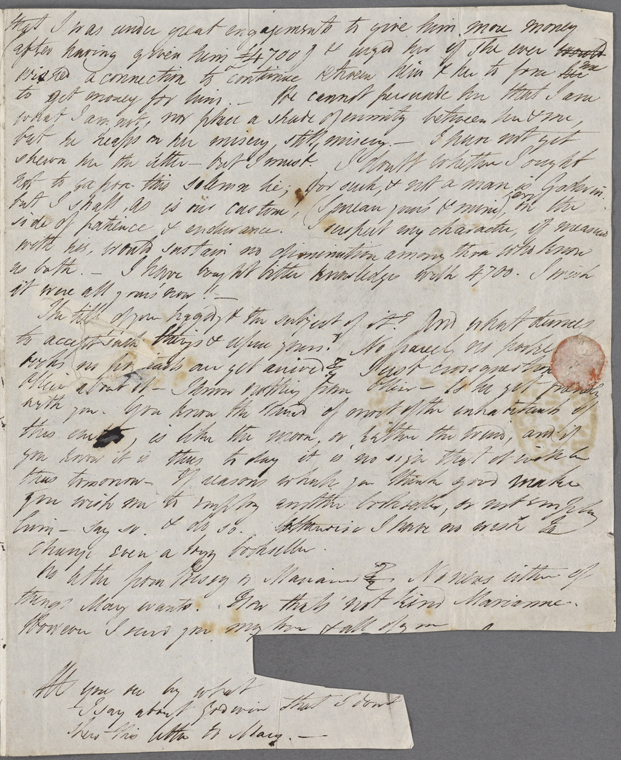 that I was under great engagements to give him more money
(after having given him £4700) & urged her if she ever
wished a connection to continue between him & her to force me
to get money for him. — He cannot persuade her that I am
what I am not, nor place a shade of enmity between her & me,
but he heaps on her misery, still misery. — I have not yet
shewn her the letter — but I must. I doubt whether I ought
not to expose this solemn lie; for such, & not a man is Godwin.
But I shall as is our custom, (I mean yours & mine) err on the
side of patience & endurance. I suspect my character, if measured
with his, would sustain no diminution among those who know
us both. — I have bought bitter knowledge with 4700. I wish
it were all yours now! —
the subject of it? And what terms
to accept such things & refuse yours. No parcel, no
books no have yet arrived.
Ollier about it — I know nothing from Ollier —
with you. You know the kind of error of the inhabitants of
this earth, is like the moon, or rather the wind, and if
you know it is thus to day it is no sign that it will be
thus tomorrow — If reasons which you think good make
you wish me to employ another bookseller, or not employ
him — say so. & do so. Otherwise I have no wish to
change even a bookseller.
No letter from Peacock or Marianne. No news either of
things Mary wants. Now that's not kind Marianne.
However I send you my love & all of you
All you see by what
I say about Godwin that I don't
shew this letter to Mary. —